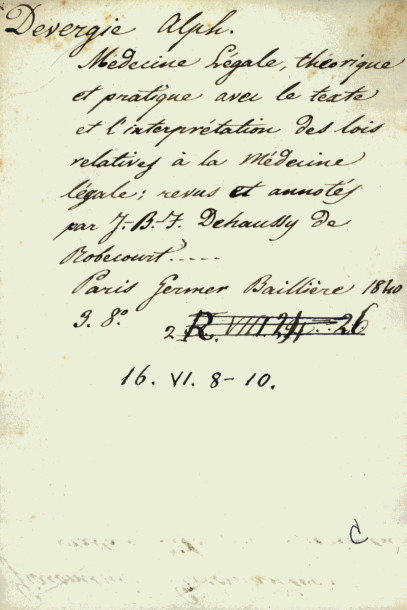 Devergie Alph.
Médecine Légale, théorique
et pratique avec le texte
et l'interprétation des lois
relatives à la Médecine
légale; revus et annotés
par J.-B.-F. Dehaussy de
Robecourt.....
Paris Germer Baillière 1840
3. 8°.
2 R. VIII 26
16. VI. 8-10.
C